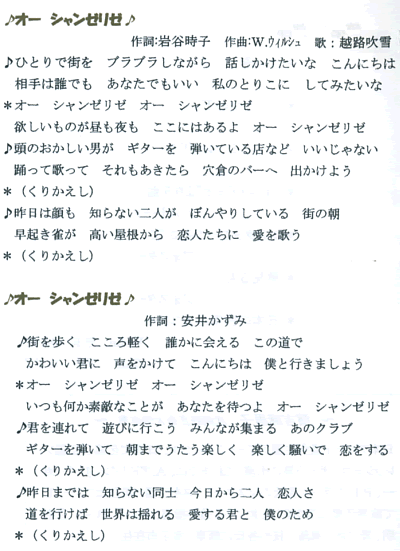 ♪オー シャンゼリゼ♪
作詞:岩谷時子 作曲:W.ウィルシュ 歌:越路吹雪
♪ひとりで街を ブラブラしながら 話しかけたいな こんにちは
相手は誰でも あなたでもいい 私のとりこに してみたいな
＊オー シャンゼリゼ オー シャンゼリゼ
欲しいものが昼も夜も ここにはあるよ オー シャンゼリゼ
♪頭のおかしい男が ギターを 弾いている店など いいじゃない
踊って歌って それもあきたら 穴倉のバーへ 出かけよう
＊（くりかえし）
♪昨日は顔も 知らない二人が ぼんやりしている 街の朝
早起き雀が 高い屋根から 恋人たちに 愛を歌う
＊（くりかえし）
♪オー シャンゼリゼ♪
作詞：安井かずみ
♪街を歩く こころ軽く 誰かに会える この道で
かわいい君に 声をかけて こんにちは 僕と行きましょう
＊オー シャンゼリゼ オー シャンゼリゼ
いつも何か素敵なことが あなたを待つよ オー シャンゼリゼ
♪君を連れて 遊びに行こう みんなが集まる あのクラブ
ギターを弾いて 朝までうたう楽しく 楽しく騒いで 恋をする
＊（くりかえし）
♪昨日までは 知らない同士 今日から二人 恋人さ
道を行けば 世界は揺れる 愛する君と 僕のため
＊（くりかえし）